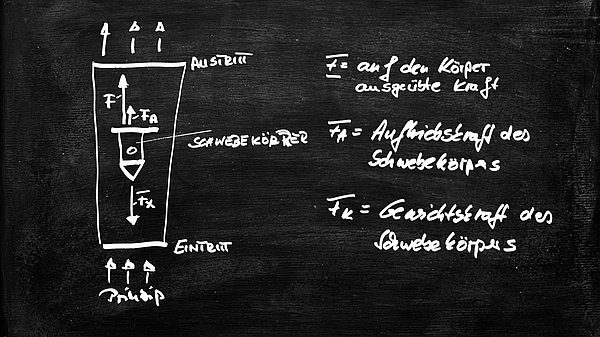 AUSTRITT
F
FA
SCHWEBEKÖRPER
FK
EINTRITT
Prinzip
F = auf den Körper
ausgeübte Kraft
FA = Auftriebskraft des
Schwebekörpers
FK = Gewichtskraft des
Schwebekörpers